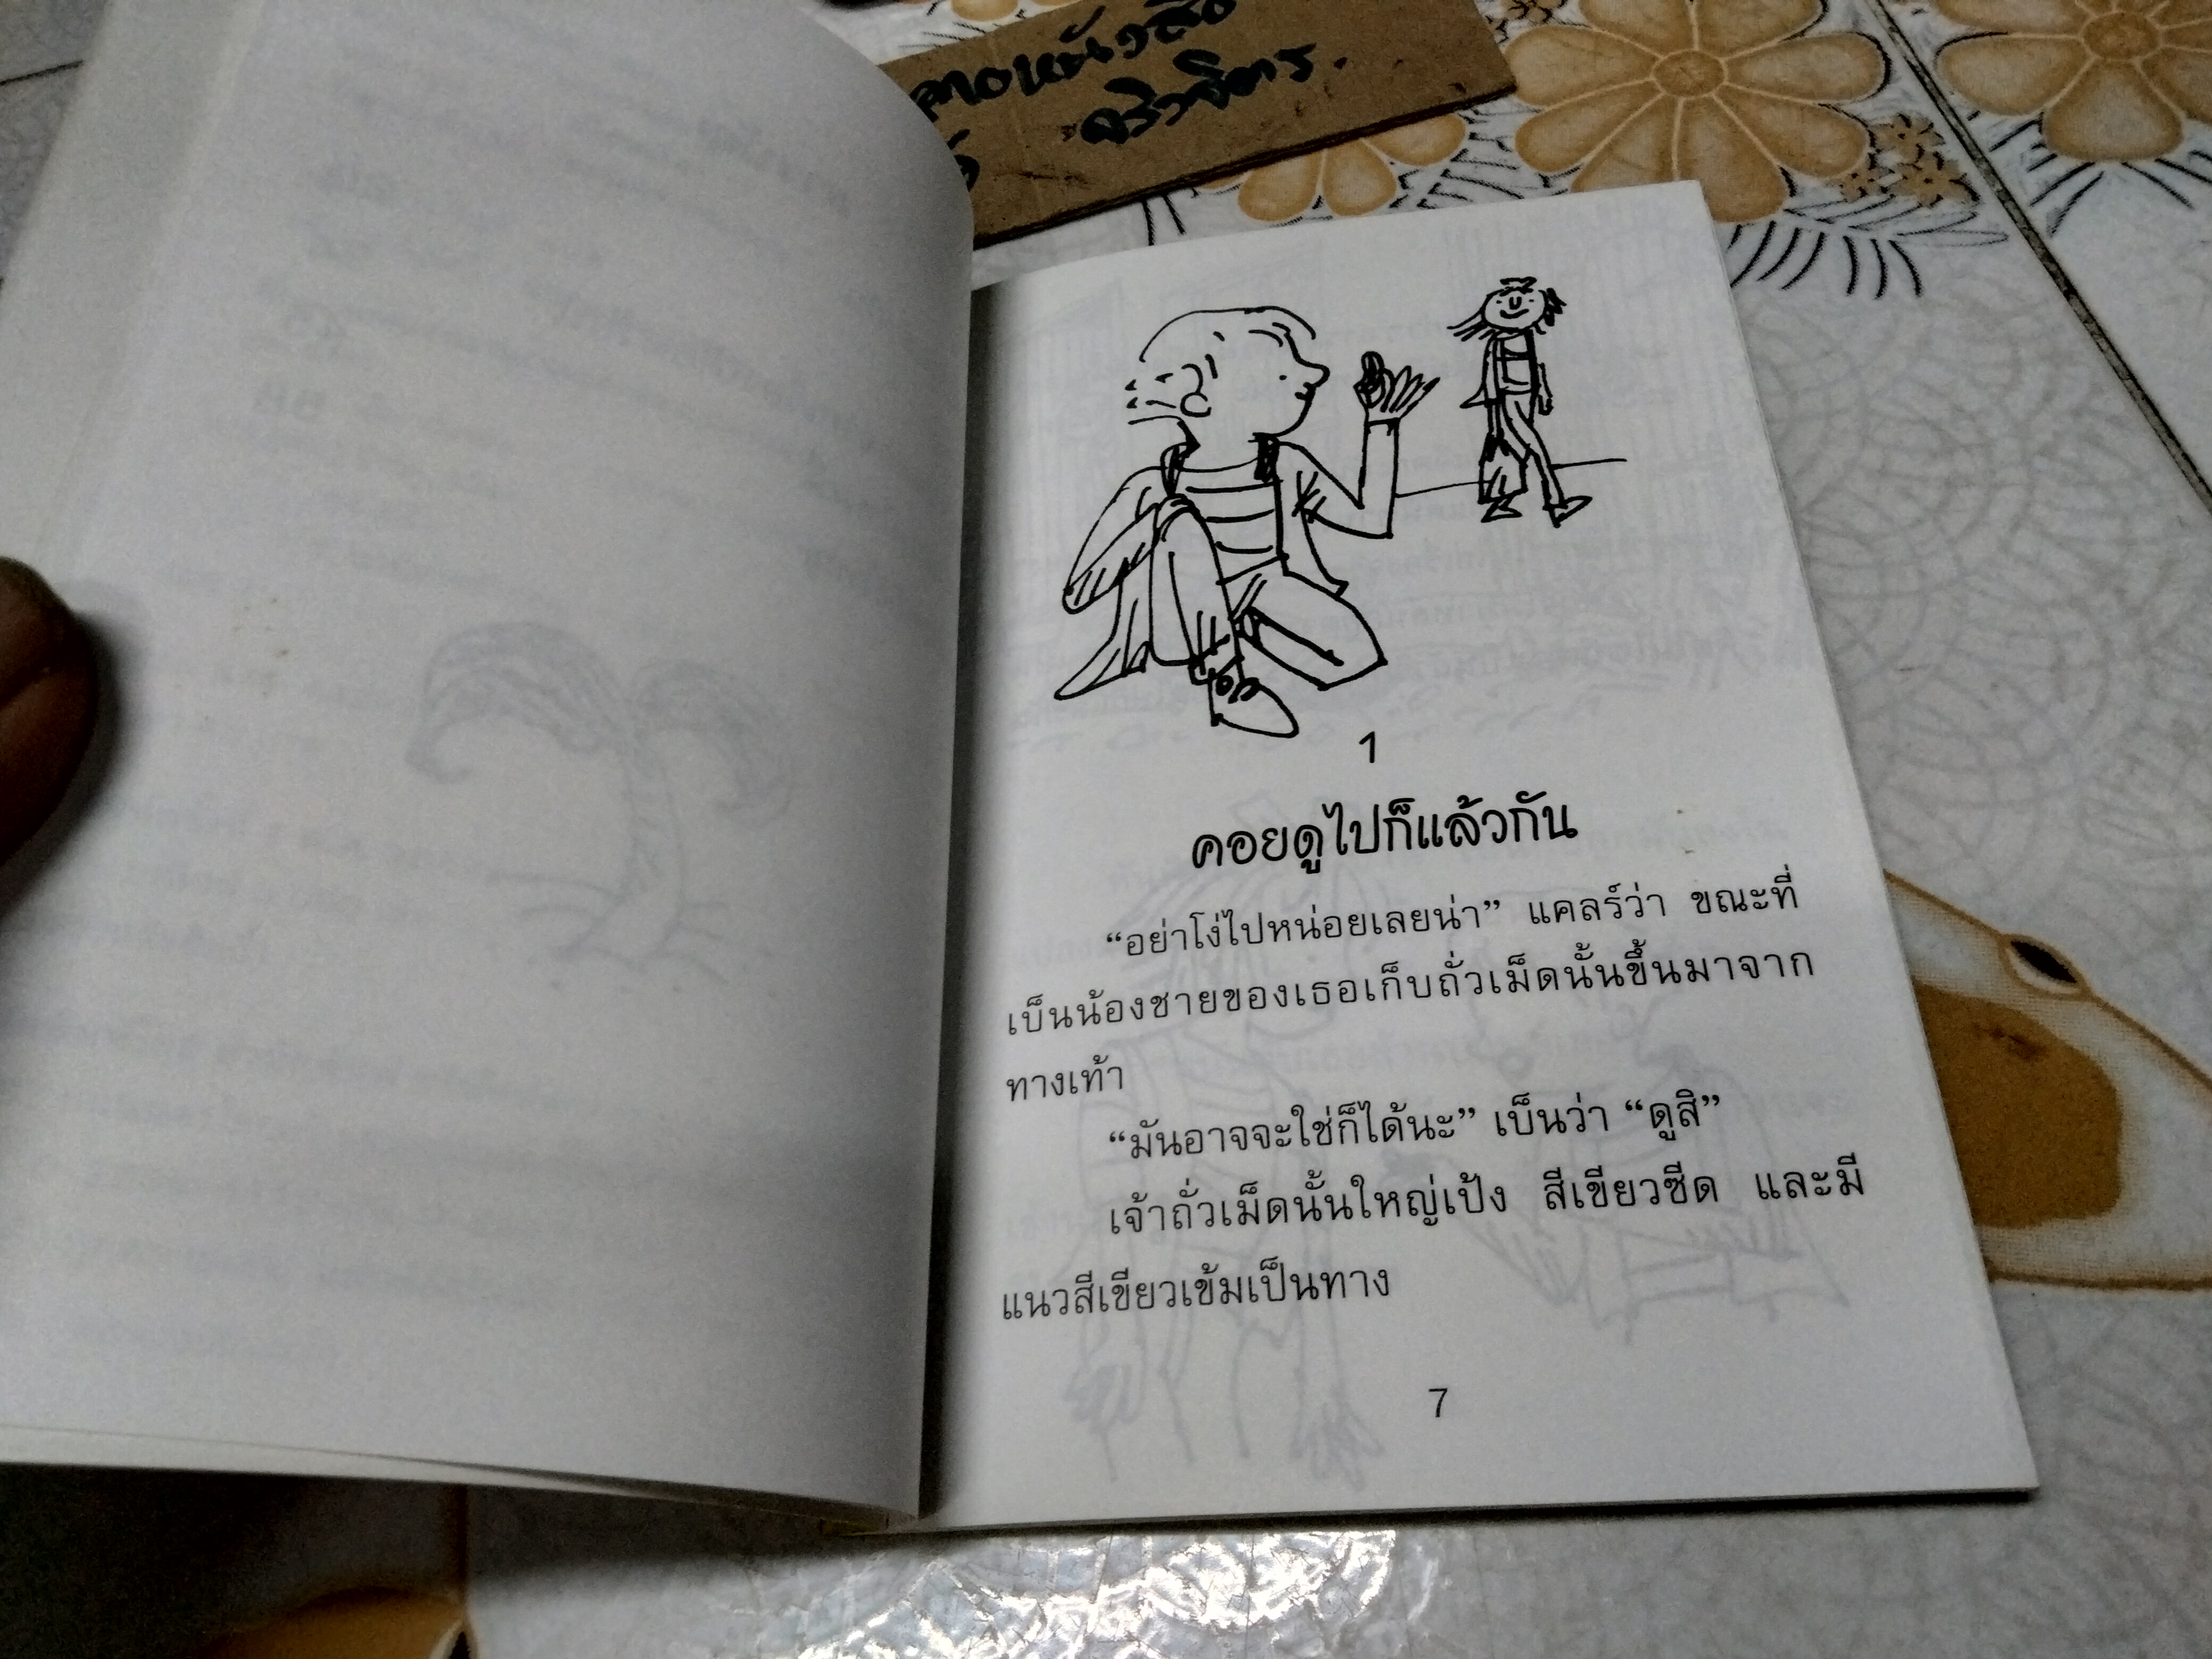 ศิริวิจิตร.
1
คอยดูไปก็แล้วกัน
“อย่าโง่ไปหน่อยเลยน่า” แคลร์ว่า ขณะที่
เบ็นน้องชายของเธอเก็บถั่วเม็ดนั้นขึ้นมาจาก
ทางเท้า
“มันอาจจะใช่ก็ได้นะ” เบ็นว่า “ดูสิ”
เจ้าถั่วเม็ดนั้นใหญ่เป้ง สีเขียวซีด และมี
แนวสีเขียวเข้มเป็นทาง
7